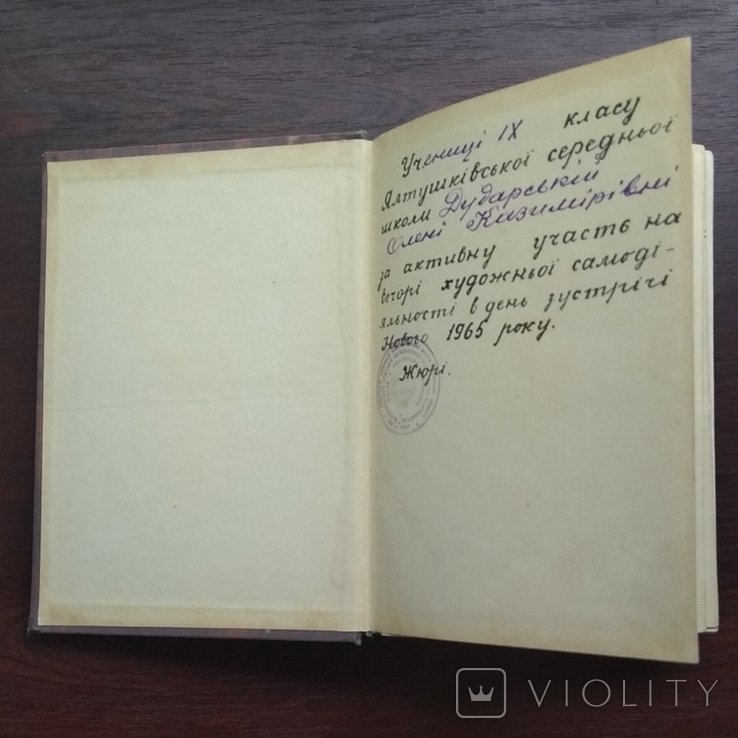 Учениці IX класу
Ялтушківської середньої
школи Дударській
Олені Казимірівні
за активну участь на
вечорі художньої самоді-
яльності в день зустрічі
Нового 1965 року.
Жюрі.
VIOLITY